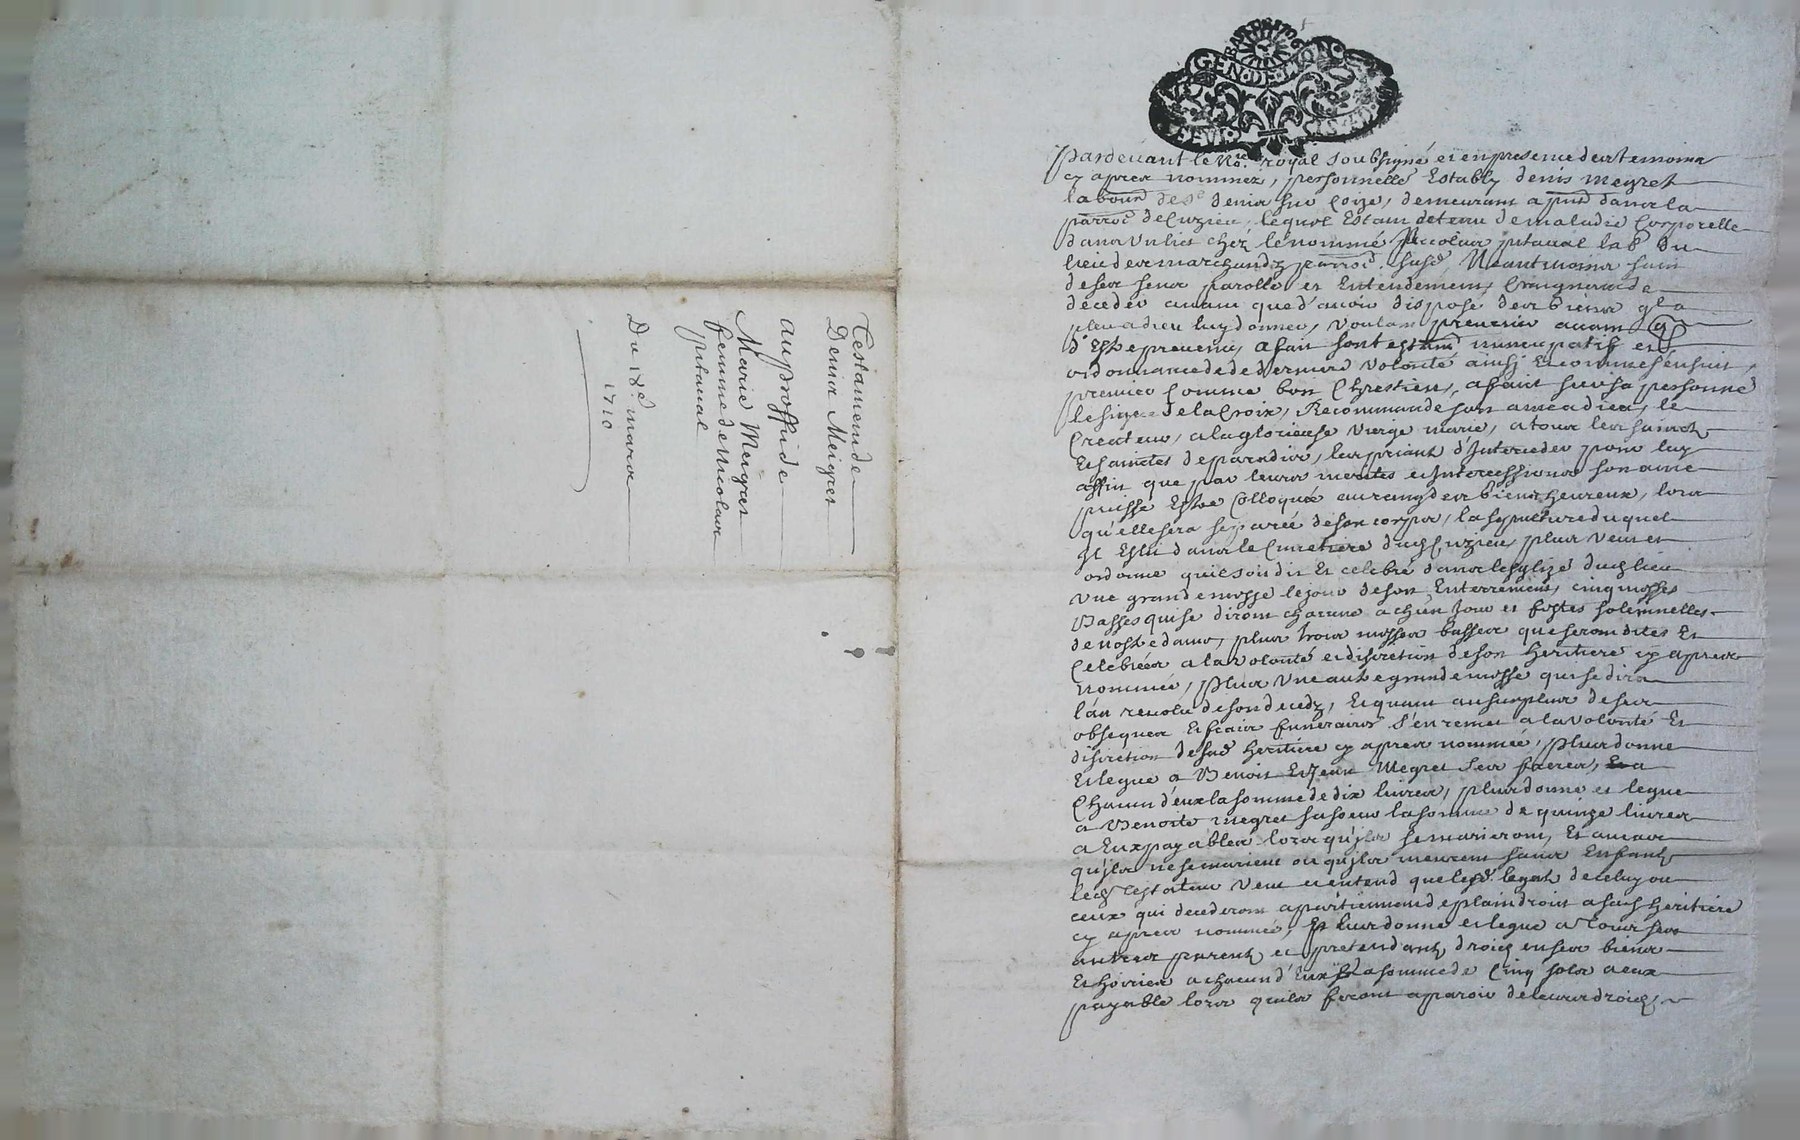 Testament de
Denis Meigret
au proffit de
Marie Meigret
femme de Nicolas
pitaual
Du 18e mars
1710
GEN DE LYON
Pardeuant le No.re royal soubsigné et en presence des temoins
cy apres nommez, personnelle Estably denis meyret
labour de St denis sur Coize, demeurant a pnt dans la
parroe de Cuzieu, lequel Estant detenu de maladie Corporelle
dans un lict chéz le nommé Nicolas pitaual lab.r du
lieu des marchandz parroe. susd, Neantmoins sain
de ses sens parolle et Entendement, Craignant de
deceder auant que d'auoir disposé des biens ql a
pleu a dieu luy donner, voulant preuenir auant q
d'Estre preuenu, a fait son testamt nuncupatif et
ordonnance de de derniere volonté ainsy Et comme s'ensuit,
premier Comme bon Chrestien, a faict sur sa personne
le signe de la Croix, Recommande son ame a dieu, le
Createur, a la glorieuse vierge marie, a tous les saincts
Et sainctes de paradis, les priant d'Interceder pour luy
affin que par leurs merites et Intercessions son ame
puisse Estre Colloquée au rang des bienheureux, lors
qu'elle sera separée de son corps, la sepulture duquel
Il Eslit dans le Cimetiere dud Cuzieu, plus veut et
ordonne quil soit dit Et celebré dans leglize dud lieu
vne grande messe le jour de son Enterrement, cinq messes
Basses qui se diront chacune a chún Jour et festes solemnelles
de nostre dame, plus trois messes basses que seront dites Et
Celebrées a la volonté et discretion de son heritiere cy apres
Nommée, plus vne autre grande messe qui se dira
l'an reuolu de son decedz, Et quant au surplus de ses
obseques Et frais funeraires s'en remet a la volonté Et
discretion de sad heritiere cy apres nommée, plus donne
Et legue a Benoit Et Jean Megret ses freres, a
Chacun d'eux la somme de dix liures, plus donne et legue
a Benoite megret sa soeur la somme de quinze liures
a Eux payables lors qu'jls se marieront, Et au cas
qu'jls ne se marient ou qu'jls meurent sans Enfants
led Testateur veut et entend que lesd. legats de celuy ou
ceux qui decederont apartiennent de plain droict a sad heritiere
cy apres nommée, Et plus donne et legue a Tous ses
autres parents et pretendants droict en ses biens
Et hoiries a chacun d'Eux la somme de Cinq sols a eux
payable lors quils feront aparoir de leurs droicts